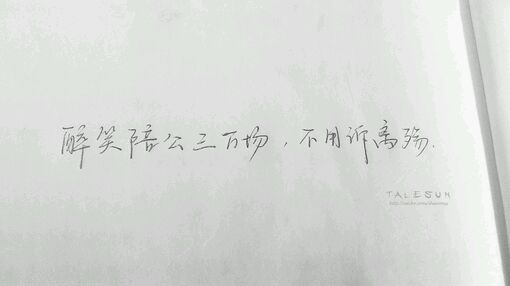 醉笑陪公三万场，不用诉离殇.
TALESUN